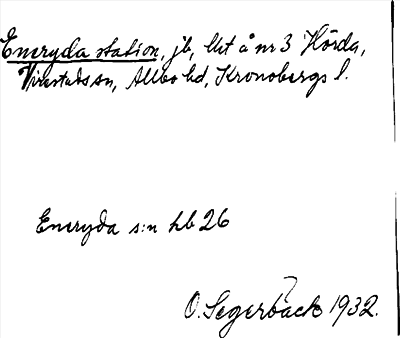 Eneryda station, jb, lht å nr 3 Hörda,
Virestads sn, Allbo hd, Kronobergs l.
Eneryda s:n hb 26
O. Segerbäck 1932.